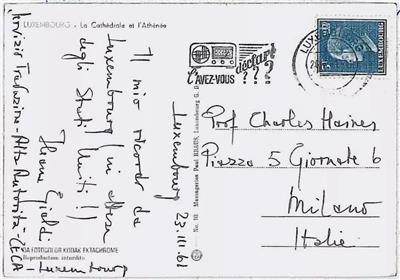 LUXEMBOURG - La Cathédrale et l'Athénée
Il mio ricordo da
Luxembourg (in attesa
degli Stati Uniti!)
Servizio Traduzione - Alta Autorità - CECA
Luxembourg
VIA FOTOCOLOR KODAK EKTACHROME
Reproduction interdite
Luxembourg
23.III.61
No. 10 Messageries Paul KRAUS, Luxembourg G. D.
L'AVEZ-VOUS déclaré
???
LUXEMBOURG
Prof Charles Haines
Piazza 5 Giornate 6
Milano
Italie